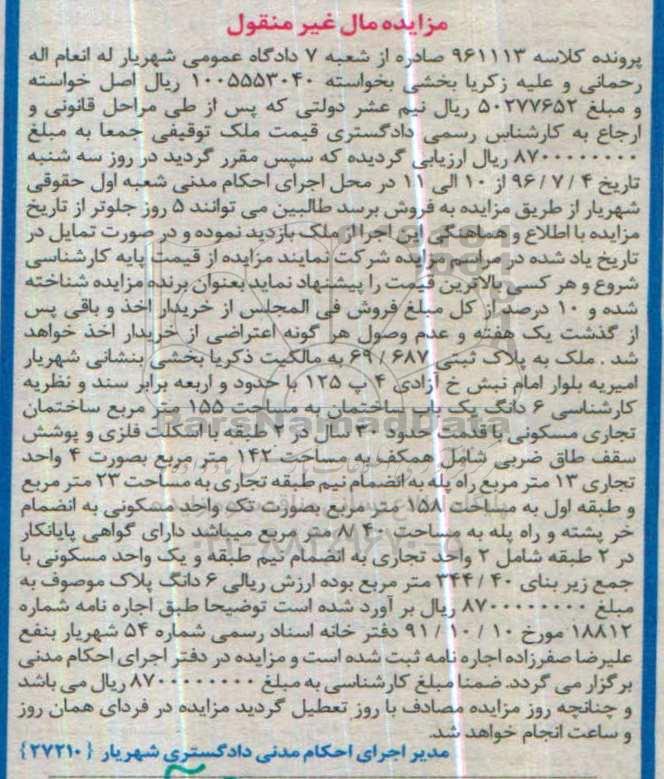 مزایده مال غیر منقول
پرونده کلاسه ۹۶۱۱۱۳ صادره از شعبه ۷ دادگاه عمومی شهریار له انعام اله
رحمانی و علیه زکریا بخشی بخواسته ۱۰۰۵۵۵۳۰۴۰ ریال اصل خواسته
و مبلغ ۵۰۲۷۷۶۵۲ ریال نیم عشر دولتی که پس از طی مراحل قانونی و
ارجاع به کارشناس رسمی دادگستری قیمت ملک توقیفی جمعا به مبلغ
۸۷۰۰۰۰۰۰۰۰۰ ریال ارزیابی گردیده که سپس مقرر گردید در روز سه شنبه
تاریخ ۴ / ۷ / ۹۶ از ۱۰ الی ۱۱ در محل اجرای احکام مدنی شعبه اول حقوقی
شهریار از طریق مزایده به فروش برسد طالبین می توانند ۵ روز جلوتر از تاریخ
مزایده با اطلاع و هماهنگی این اجرا از ملک بازدید نموده و در صورت تمایل در
تاریخ یاد شده در مراسم مزایده شرکت نمایند مزایده از قیمت پایه کارشناسی
شروع و هر کسی بالاترین قیمت را پیشنهاد نماید بعنوان برنده مزایده شناخته
شده و ۱۰ درصد از کل مبلغ فروش فی المجلس از خریدار اخذ و باقی پس
از گذشت یک هفته و عدم وصول هر گونه اعتراضی از خریدار اخذ خواهد
شد . ملک به پلاک ثبتی ۶۸۷ / ۶۹ به مالکیت ذکریا بخشی بنشانی شهریار
امیریه بلوار امام نبش خ آزادی ۴ پ ۱۲۵ با حدود و اربعه برابر سند و نظریه
کارشناسی ۶ دانگ یک باب ساختمان به مساحت ۱۵۵ متر مربع ساختمان
تجاری مسکونی با قدمت حدود ۲۰ سال در ۲ طبقه با اسکلت فلزی و پوشش
سقف طاق ضربی شامل همکف به مساحت ۱۴۲ متر مربع بصورت ۴ واحد
تجاری ۱۳ متر مربع راه پله به انضمام نیم طبقه تجاری به مساحت ۲۳ متر مربع
و طبقه اول به مساحت ۱۵۸ متر مربع بصورت تک واحد مسکونی به انضمام
خر پشته و راه پله به مساحت ۴۰ / ۸ متر مربع میباشد دارای گواهی پایانکار
در ۲ طبقه شامل ۲ واحد تجاری به انضمام نیم طبقه و یک واحد مسکونی با
جمع زیر بنای ۴۰ / ۳۴۴ متر مربع بوده ارزش ریالی ۶ دانگ پلاک موصوف به
مبلغ ۸۷۰۰۰۰۰۰۰۰۰ ریال بر آورد شده است توضیحا طبق اجاره نامه شماره
۱۸۸۱۲ مورخ ۱۰ / ۱۰ / ۹۱ دفتر خانه اسناد رسمی شماره ۵۴ شهریار بنفع
علیرضا صفرزاده اجاره نامه ثبت شده است و مزایده در دفتر اجرای احکام مدنی
برگزار می گردد. ضمنا مبلغ کارشناسی به مبلغ ۸۷۰۰۰۰۰۰۰۰۰ ریال می باشد
و چنانچه روز مزایده مصادف با روز تعطیل گردید مزایده در فردای همان روز
و ساعت انجام خواهد شد.
مدیر اجرای احکام مدنی دادگستری شهریار {۲۷۲۱۰}
ParsNamadData